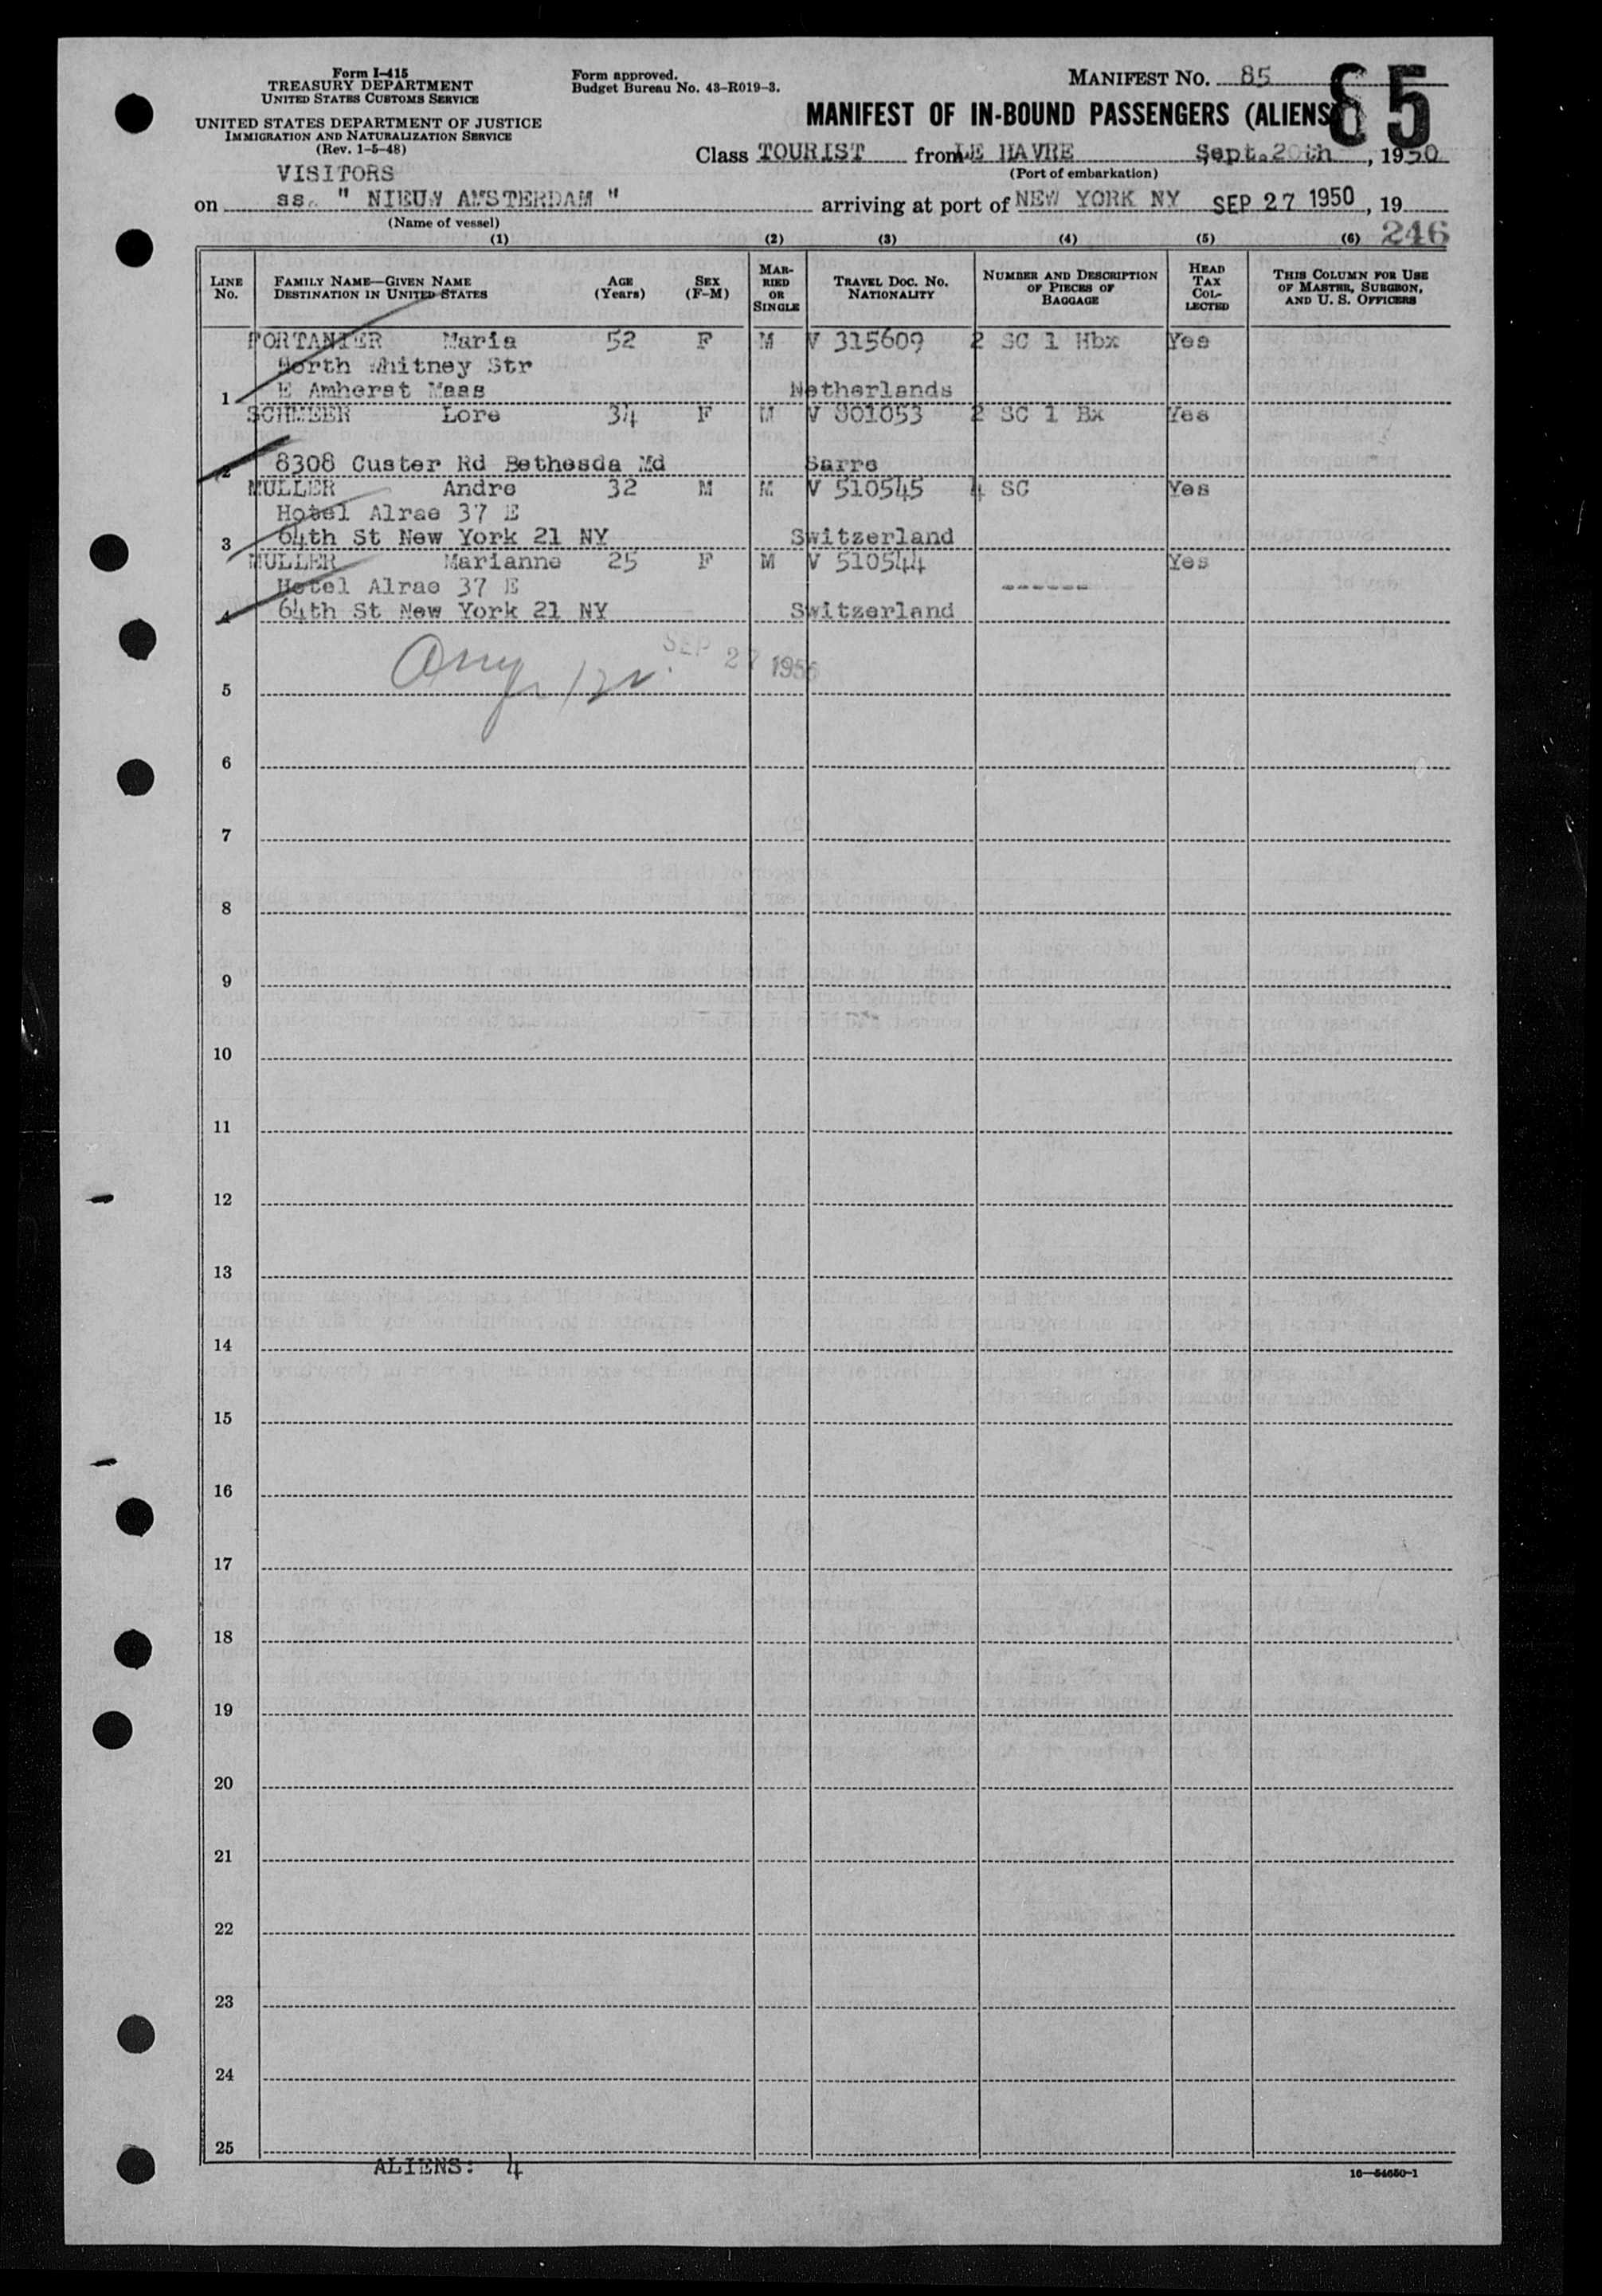 Form I-415
TREASURY DEPARTMENT
UNITED STATES CUSTOMS SERVICE
UNITED STATES DEPARTMENT OF JUSTICE
IMMIGRATION AND NATURALIZATION SERVICE
(Rev. 1-5-48)
Form approved.
Budget Bureau No. 43-R019-3.
MANIFEST NO. 85
85
MANIFEST OF IN-BOUND PASSENGERS (ALIENS)
Class TOURIST from LE HAVRE Sept. 20th, 1950
(Port of embarkation)
VISITORS
on ss. " NIEUW AMSTERDAM " arriving at port of NEW YORK NY SEP 27 1950, 19
(Name of vessel)
246
(1) (2) (3) (4) (5) (6)
LINE No. FAMILY NAME—GIVEN NAME DESTINATION IN UNITED STATES AGE (Years) SEX (F-M) MARRIED OR SINGLE TRAVEL DOC. NO. NATIONALITY NUMBER AND DESCRIPTION OF PIECES OF BAGGAGE HEAD TAX COLLECTED THIS COLUMN FOR USE OF MASTER, SURGEON, AND U. S. OFFICERS
PORTANIER Maria 52 F M V 315609 2 SC 1 Hbx Yes
North Whitney Str
1 E Amherst Mass Netherlands
SCHMEER Lore 34 F M V 801053 2 SC 1 Bx Yes
2 8308 Custer Rd Bethesda Md Sarre
MULLER Andre 32 M M V 510545 4 SC Yes
Hotel Alrae 37 E
3 64th St New York 21 NY Switzerland
MULLER Marianne 25 F M V 510544 Yes
Hotel Alrae 37 E ------
4 64th St New York 21 NY Switzerland
SEP 27 1950
5
6
7
8
9
10
11
12
13
14
15
16
17
18
19
20
21
22
23
24
25
ALIENS: 4
16—54650-1